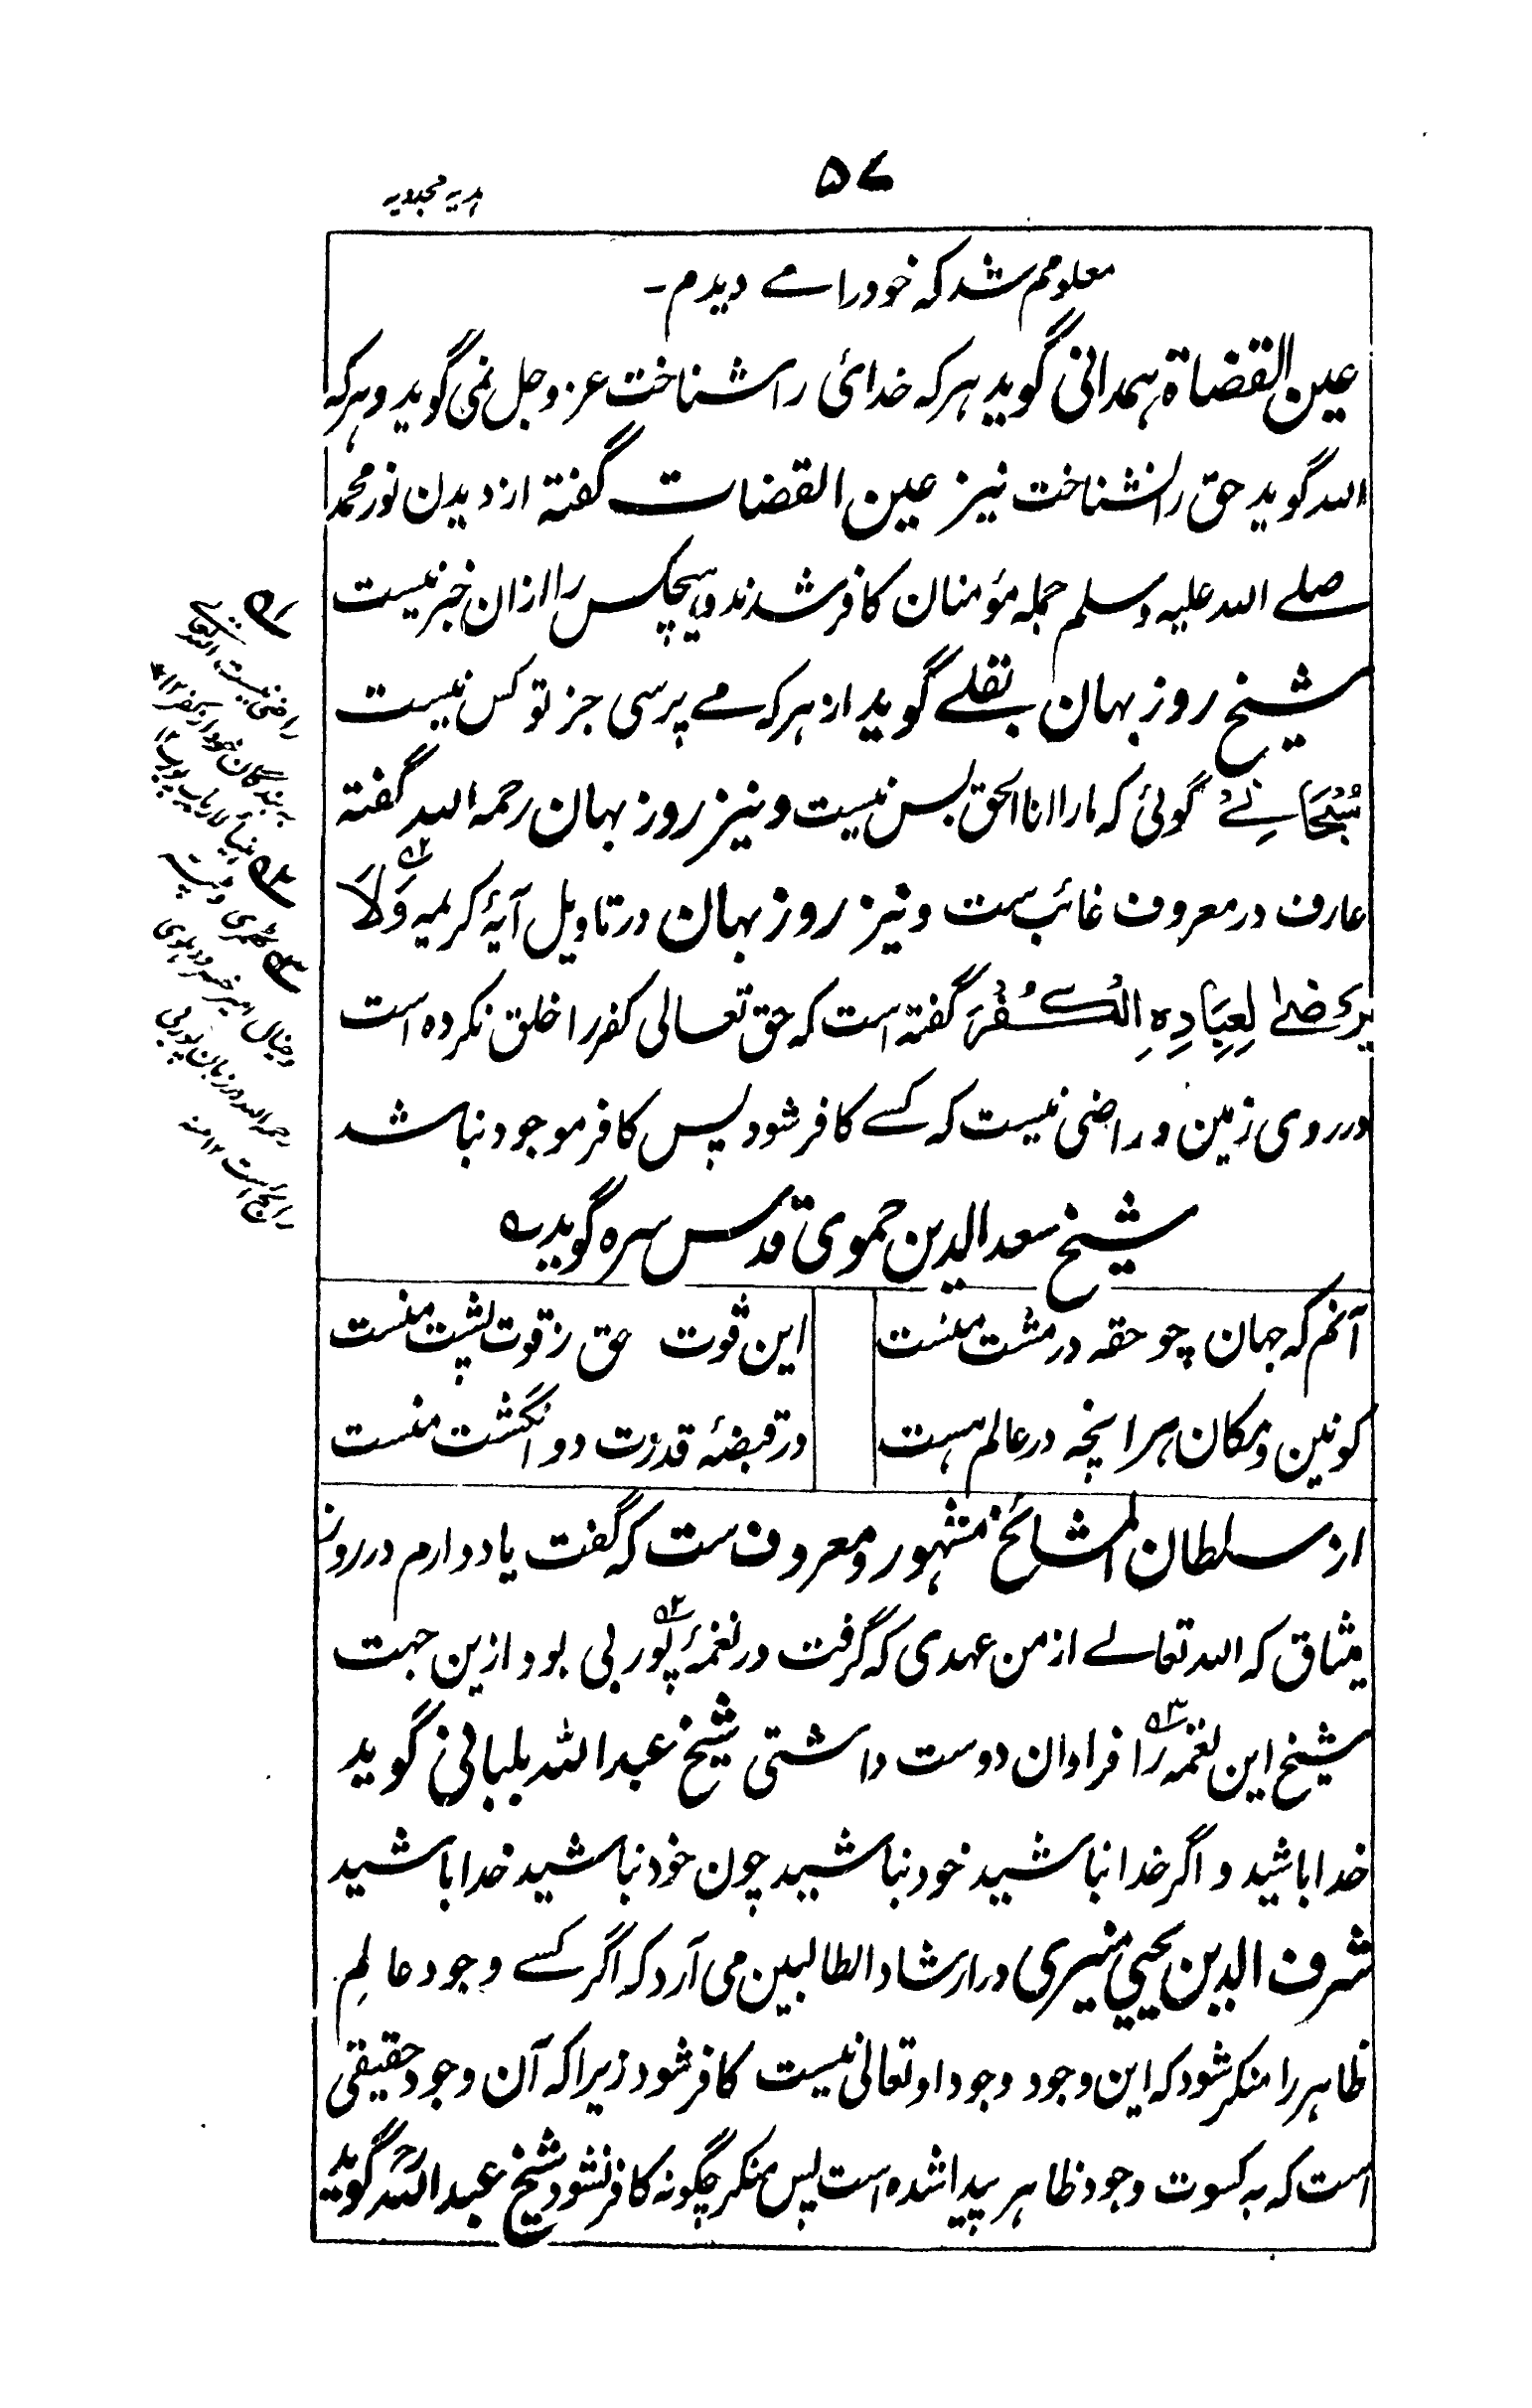 ۵۷
ہدیہ محبوبیہ
معلومم شد کہ خود را مے دیدم ۔
عین القضاۃ ہمدانی گوید ہر کہ خدائی را شناخت عزوجل نمی گوید و ہر کہ
اللہ گوید حق را نشناخت نیز عین القضات گفتہ از دیدن نور محمد
صلے اللہ علیہ وسلم جملہ مؤمنان کافر شدند و ہیچکس را ازان خبر نیست
شیخ روز بہان بقلے گوید از ہر کہ مے پرسی جز تو کس نیست
سُبْحَانِےْ گوئی کہ مارا انا الحق بس نیست و نیز روز بہان رحمہ اللہ گفتہ
عارف در معروف غائب ست و نیز روز بہان در تاویل آیۂ کریمہ وَلَا
یَرْضٰے لِعِبَادِہِ الْکُفْرَ گفتہ است کہ حق تعالی کفر را خلق نکردہ است
در روی زمین و راضی نیست کہ کسے کافر شود پس کافر موجود نباشد
شیخ سعد الدین حموی قدس سرہ گوید ؎
آنم کہ جہان چو حقہ در مشت منست
این قوت حق ز قوت پشت منست
کونین و مکان ہر انچہ در عالم ہست
در قبضۂ قدرت دو انگشت منست
از سلطان المشائخ مشہور و معروف ست کہ گفت یاد دارم در روز
میثاق کہ اللہ تعالے از من عہدی کہ گرفت در نغمۂ پوربی بود ازین جہت
شیخ این نغمہ را فراوان دوست داشتی شیخ عبد اللہ بلبانی گوید
خدا باشید و اگر خدا نباشید خود نباشید چون خود نباشید خدا باشید
شرف الدین یحیی منیری در ارشاد الطالبین می آرد کہ اگر کسے وجود عالِم
ظاہر را منکر شود کہ این وجود وجود او تعالی نیست کافر شود زیرا کہ آن وجود حقیقی
است کہ بہ کسوت وجود ظاہر پیدا شدہ است پس منکر چگونہ کافر نشود شیخ عبد اللہ گوید
راضی نیست اللہ تعالے
بہ بندگان خود از کفر ۱۲
و خیال امیر خسرو دہلوی
رحمہ اللہ در زبان پوربی
رائج است ۱۲ منہ